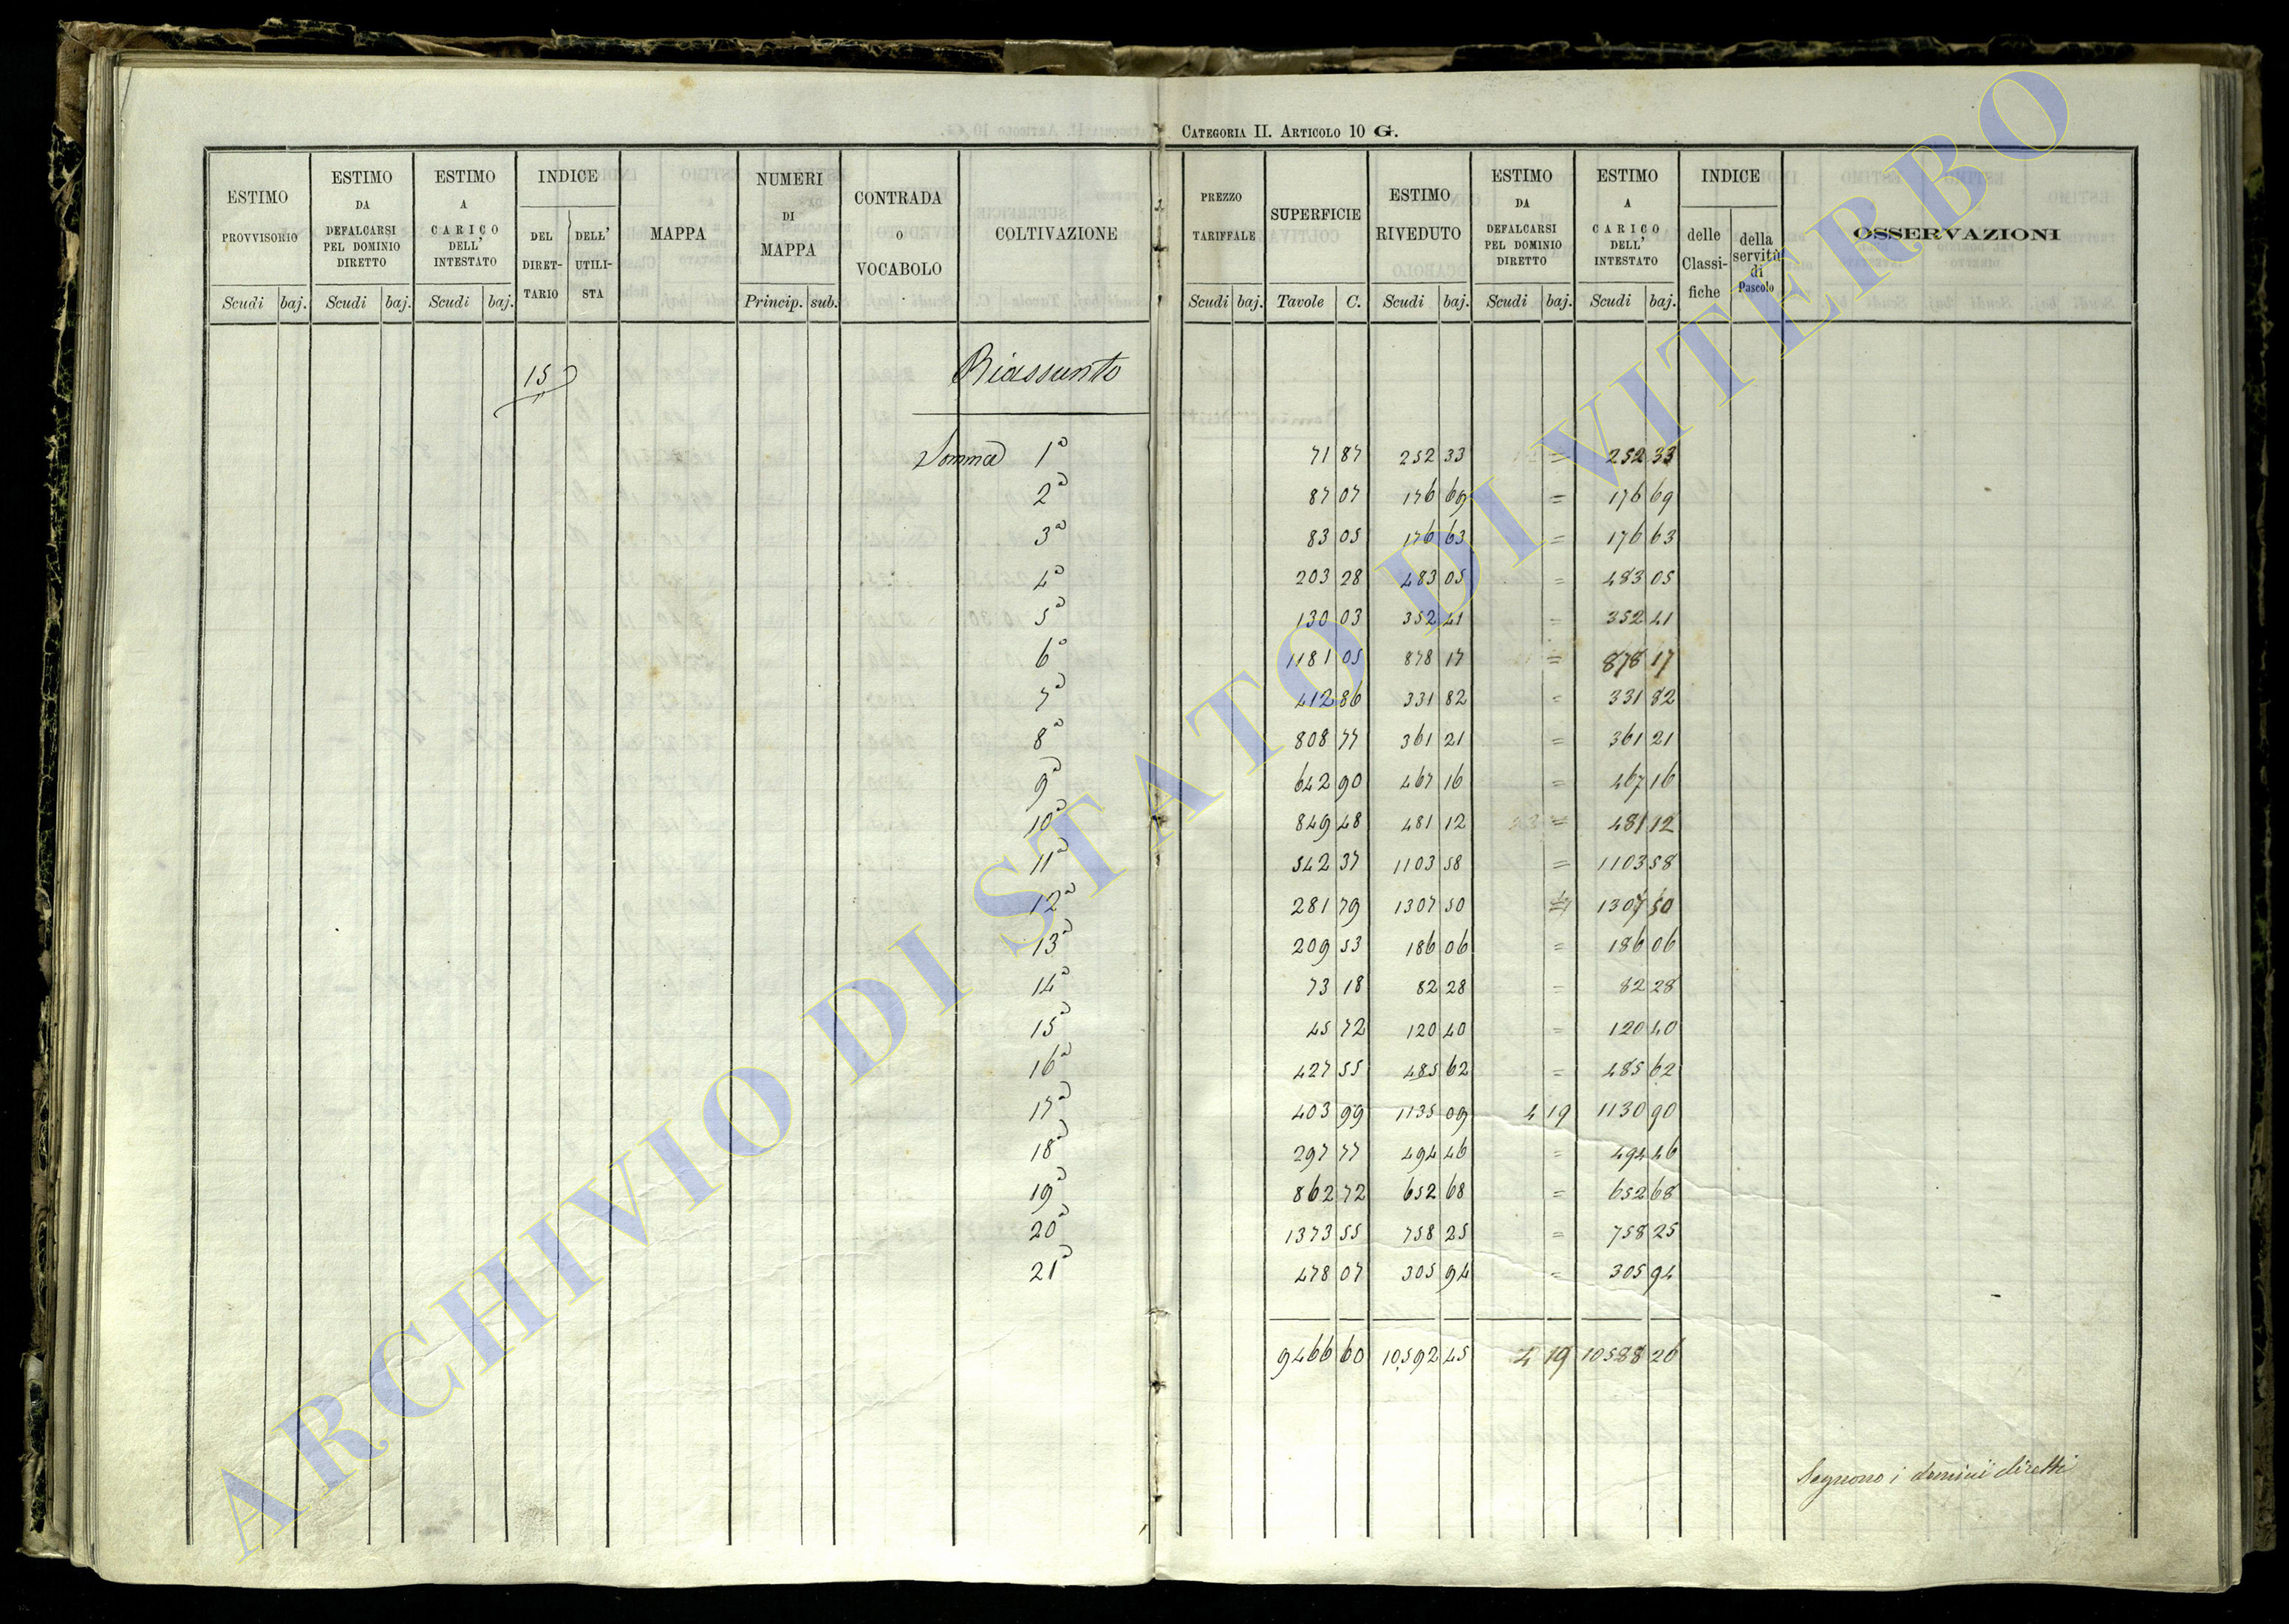 CATEGORIA II. ARTICOLO 10 G.
ESTIMO PROVVISORIO
ESTIMO DA DEFALCARSI PEL DOMINIO DIRETTO
ESTIMO A CARICO DELL' INTESTATO
INDICE
DEL DIRET-TARIO
DELL' UTILI-STA
MAPPA
NUMERI DI MAPPA
CONTRADA O VOCABOLO
COLTIVAZIONE
PREZZO TARIFFALE
SUPERFICIE
ESTIMO RIVEDUTO
ESTIMO DA DEFALCARSI PEL DOMINIO DIRETTO
ESTIMO A CARICO DELL' INTESTATO
INDICE
delle Classi-fiche
della servitù di Pascolo
OSSERVAZIONI
Scudi baj. Scudi baj. Scudi baj. Princip. sub. Scudi baj. Tavole C. Scudi baj. Scudi baj. Scudi baj.
15 Riassunto
Somma 1a 71 87 252 33 = 252 33
2a 87 07 176 69 = 176 69
3a 83 05 176 63 = 176 63
4a 203 28 483 05 = 483 05
5a 130 03 352 41 = 352 41
6a 1181 05 878 17 = 878 17
7a 412 86 331 82 = 331 82
8a 808 77 361 21 = 361 21
9a 642 90 467 16 = 467 16
10a 849 48 481 12 = 481 12
11a 542 37 1103 58 = 1103 58
12a 281 79 1307 50 = 1307 50
13a 209 53 186 06 = 186 06
14a 73 18 82 28 = 82 28
15a 45 72 120 40 = 120 40
16a 427 55 485 62 = 485 62
17a 403 99 1135 09 4 19 1130 90
18a 297 77 494 46 = 494 46
19a 862 72 652 68 = 652 68
20a 1373 55 758 25 = 758 25
21a 478 07 305 94 = 305 94
9466 60 10,592 45 4 19 10588 26
Segnono i domini diretti
ARCHIVIO DI STATO DI VITERBO